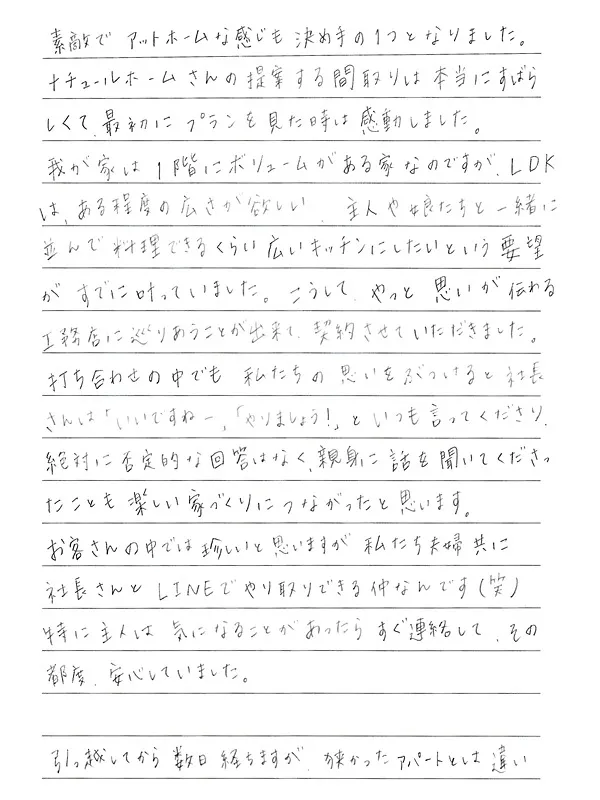 素敵で アットホームな感じも 決め手の1つとなりました。
ナチュールホームさんの提案する間取りは本当にすばら
しくて、最初に プランを見た時は 感動しました。
我が家は 1階にボリュームがある家なのですが、LDK
は、ある程度の広さが欲しい、主人や娘たちと一緒に
並んで料理できるくらい広いキッチンにしたいという要望
が すでに叶っていました。こうして、やっと 思いが伝わる
工務店に巡りあうことが出来て、契約させていただきました。
打ち合わせの中でも 私たちの思いをぶつけると 社長
さんは「いいですねー」、「やりましょう!」といつも言ってくださり、
絶対に否定的な回答はなく、親身に話を聞いてくださっ
たことも楽しい家づくりにつながったと思います。
お客さんの中では珍しいと思いますが 私たち夫婦共に
社長さんと LINEでやり取りできる仲なんです(笑)
特に主人は 気になることがあったら すぐ連絡して、その
都度、安心していました。
引っ越してから 数日 経ちますが、狭かったアパートとは 違い